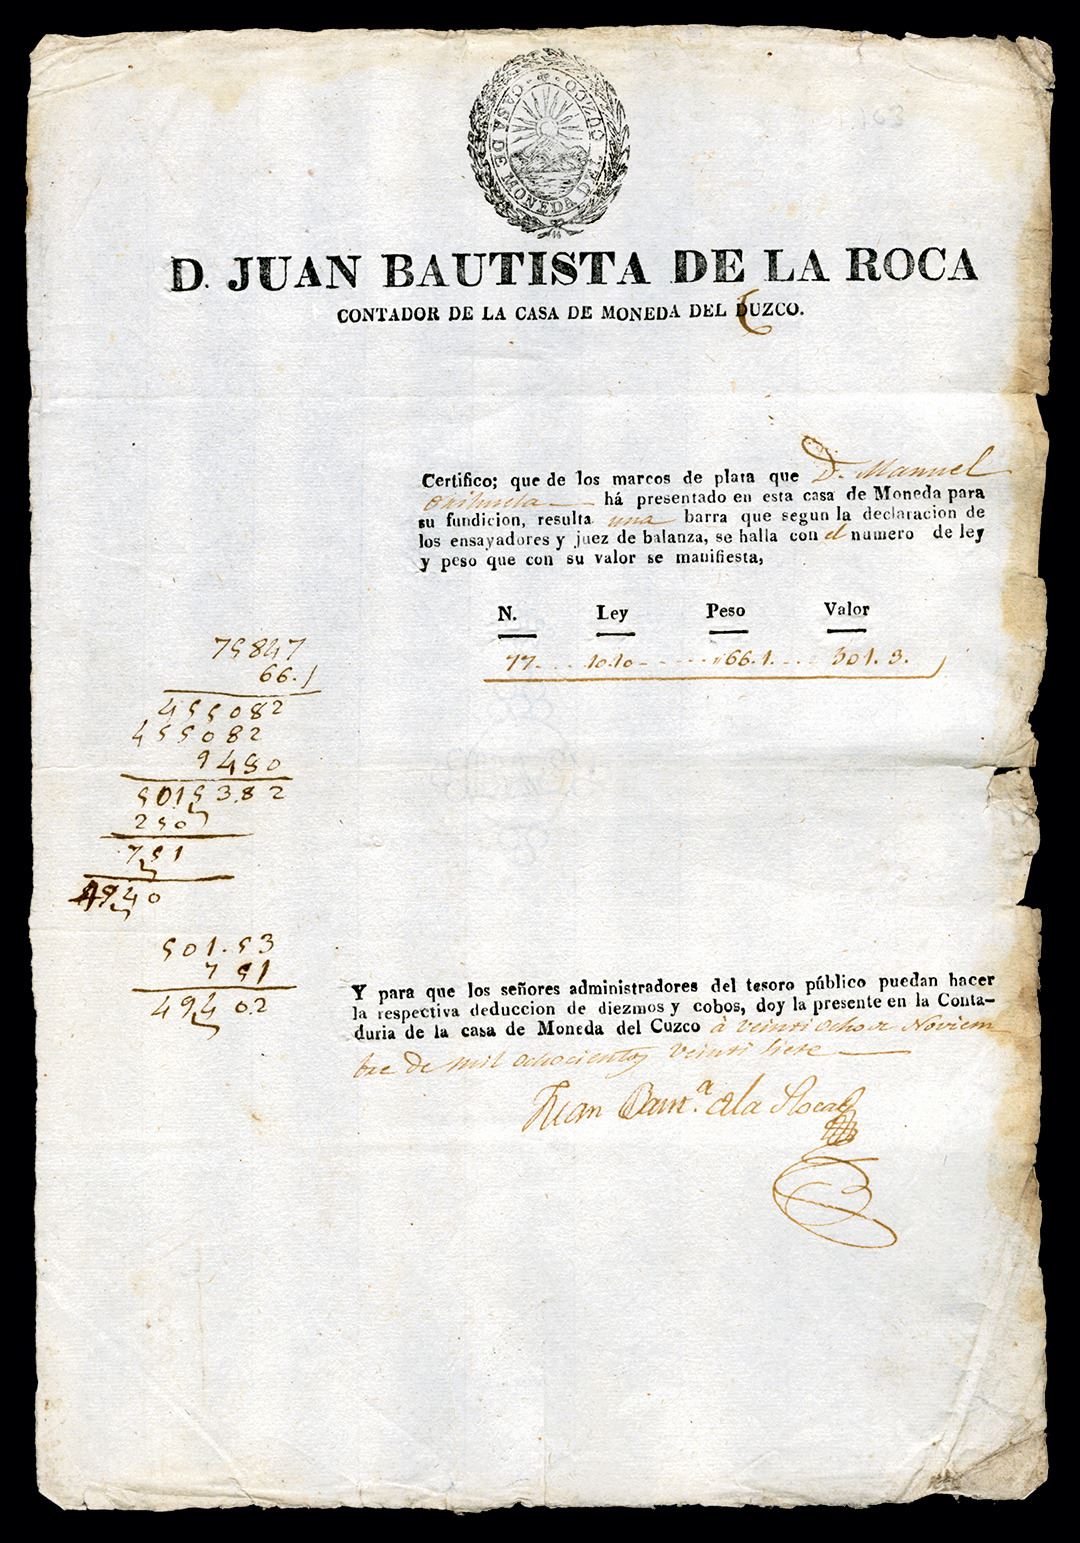 CASA DE MONEDA DEL CUZCO
D. JUAN BAUTISTA DE LA ROCA
CONTADOR DE LA CASA DE MONEDA DEL CUZCO.
Certifico; que de los marcos de plata que D. Manuel
Orihuela há presentado en esta casa de Moneda para
su fundicion, resulta una barra que segun la declaracion de
los ensayadores y juez de balanza, se halla con el numero de ley
y peso que con su valor se manifiesta,
N. Ley Peso Valor
77 10.10 166.1. 301.3.
75847
66.1
455082
455082
9480
5015382
250
751
4940
501.53
751
49402
Y para que los señores administradores del tesoro público puedan hacer
la respectiva deduccion de diezmos y cobos, doy la presente en la Conta-
duria de la casa de Moneda del Cuzco à veinti ocho de Noviem
bre de mil ochocientos veinti siete
Juan Baut.a de la Roca